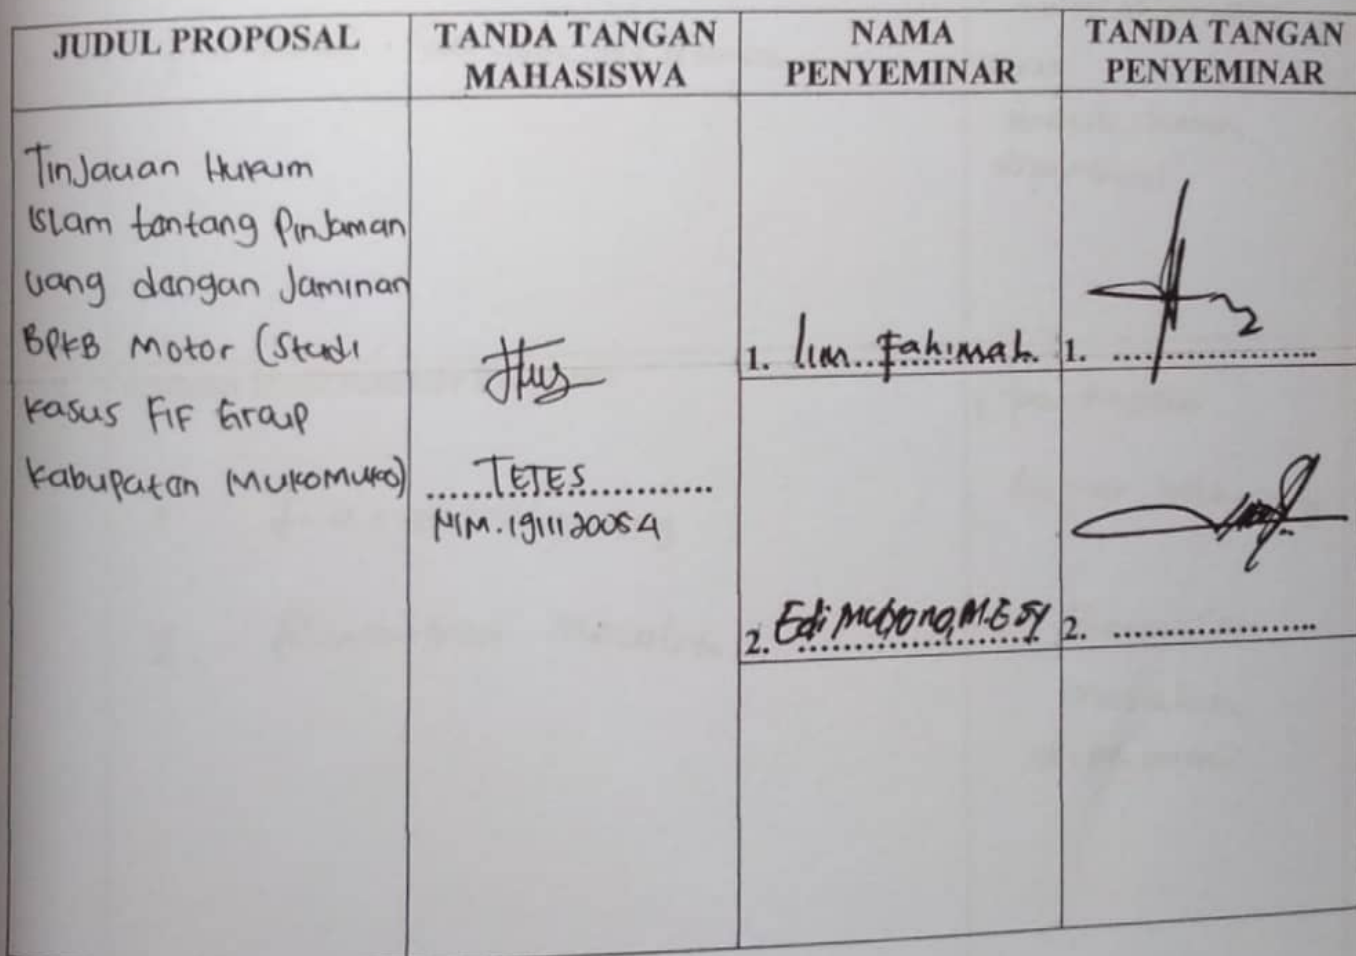 JUDUL PROPOSAL
TANDA TANGAN
MAHASISWA
NAMA
PENYEMINAR
TANDA TANGAN
PENYEMINAR
Tinjauan Hukum
Islam tentang Pinjaman
uang dengan Jaminan
BPKB Motor (Studi
Kasus FIF Group
Kabupaten Mukomuko)
TETES
NIM. 1911120054
1. Iim Fahimah
1. ....................
2. Edi Mulyono, M.E.Sy
2. ....................